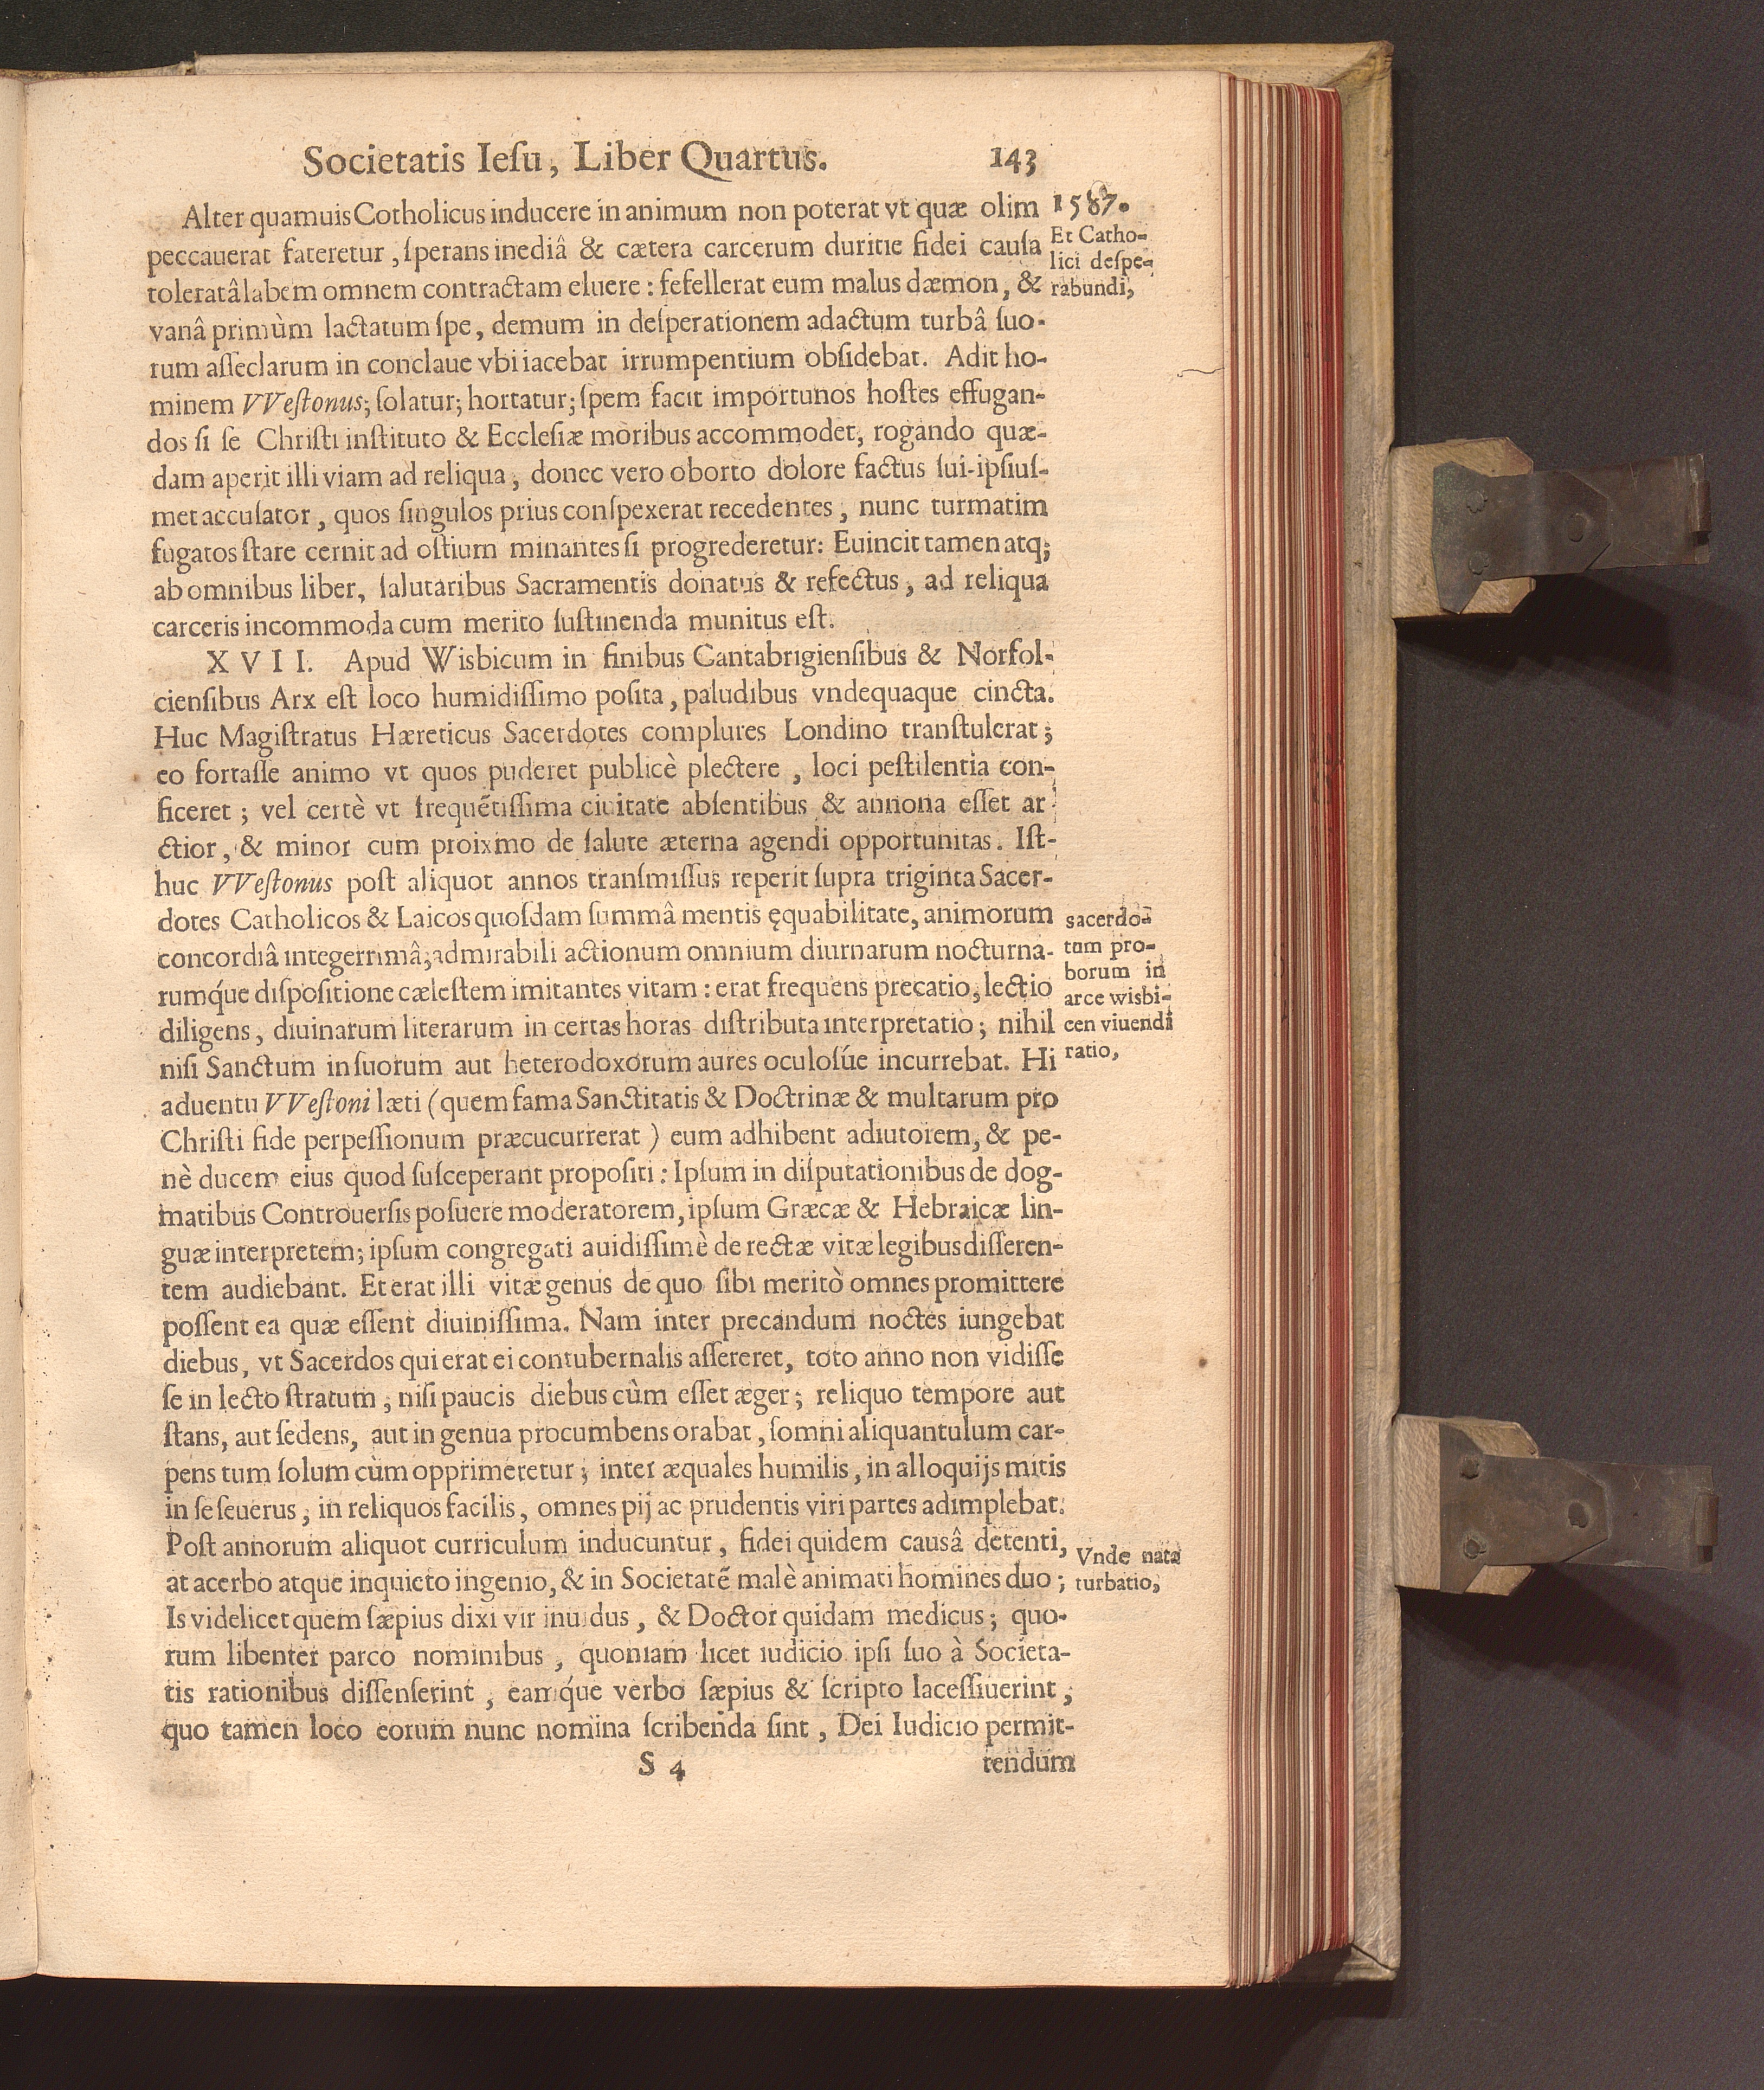 Societatis Ieſu, Liber Quartus. 143
Alter quamuis Cotholicus inducere in animum non poterat vt quæ olim
peccauerat fateretur, ſperans inediâ & cætera carcerum duritie fidei cauſa
toleratâ labem omnem contractam eluere: fefellerat eum malus dæmon, &
vanâ primùm lactatum ſpe, demum in deſperationem adactum turbâ ſuo-
rum aſſeclarum in conclaue vbi iacebat irrumpentium obſidebat. Adit ho-
minem VVeſtonus; ſolatur; hortatur; ſpem facit importunos hoſtes effugan-
dos ſi ſe Chriſti inſtituto & Eccleſiæ moribus accommodet, rogando quæ-
dam aperit illi viam ad reliqua, donec vero oborto dolore factus ſui-ipſiuſ-
met accuſator, quos ſingulos prius conſpexerat recedentes, nunc turmatim
fugatos ſtare cernit ad oſtium minantes ſi progrederetur: Euincit tamen atq;
ab omnibus liber, ſalutaribus Sacramentis donatus & refectus, ad reliqua
carceris incommoda cum merito ſuſtinenda munitus eſt.
1587.
Et Catho-
lici deſpe-
rabundi,
XVII. Apud Wisbicum in finibus Cantabrigienſibus & Norfol-
cienſibus Arx eſt loco humidiſſimo poſita, paludibus vndequaque cincta.
Huc Magiſtratus Hæreticus Sacerdotes complures Londino tranſtulerat;
eo fortaſſe animo vt quos puderet publicè plectere, loci peſtilentia con-
ficeret; vel certè vt frequẽtiſſima ciuitate abſentibus & annona eſſet ar-
ctior, & minor cum proixmo de ſalute æterna agendi opportunitas. Iſt-
huc VVeſtonus poſt aliquot annos tranſmiſſus reperit ſupra triginta Sacer-
dotes Catholicos & Laicos quoſdam ſummâ mentis ęquabilitate, animorum
concordiâ integerrimâ, admirabili actionum omnium diurnarum nocturna-
rumq́ue diſpoſitione cæleſtem imitantes vitam: erat frequens precatio, lectio
diligens, diuinarum literarum in certas horas diſtributa interpretatio; nihil
niſi Sanctum in ſuorum aut heterodoxorum aures oculoſúe incurrebat. Hi
aduentu VVeſtoni læti (quem fama Sanctitatis & Doctrinæ & multarum pro
Chriſti fide perpeſſionum præcucurrerat) eum adhibent adiutorem, & pe-
nè ducem eius quod ſuſceperant propoſiti: Ipſum in diſputationibus de dog-
matibus Controuerſis poſuere moderatorem, ipſum Græcæ & Hebraicæ lin-
guæ interpretem; ipſum congregati auidiſſimè de rectæ vitæ legibus diſſeren-
tem audiebant. Et erat illi vitæ genus de quo ſibi meritò omnes promittere
poſſent ea quæ eſſent diuiniſſima. Nam inter precandum noctes iungebat
diebus, vt Sacerdos qui erat ei contubernalis aſſereret, toto anno non vidiſſe
ſe in lecto ſtratum, niſi paucis diebus cùm eſſet æger; reliquo tempore aut
ſtans, aut ſedens, aut in genua procumbens orabat, ſomni aliquantulum car-
pens tum ſolum cùm opprimeretur; inter æquales humilis, in alloquijs mitis
in ſe ſeuerus, in reliquos facilis, omnes pij ac prudentis viri partes adimplebat.
Poſt annorum aliquot curriculum inducuntur, fidei quidem causâ detenti,
at acerbo atque inquieto ingenio, & in Societatẽ malè animati homines duo;
Is videlicet quem ſæpius dixi vir inuidus, & Doctor quidam medicus; quo-
rum libenter parco nominibus, quoniam licet iudicio ipſi ſuo à Societa-
tis rationibus diſſenſerint, eamq́ue verbo ſæpius & ſcripto laceſſiuerint,
quo tamen loco eorum nunc nomina ſcribenda ſint, Dei Iudicio permit-
sacerdo-
tum pro-
borum in
arce wisbi-
cen viuendi
ratio,
Vnde nata
turbatio,
S 4 tendum